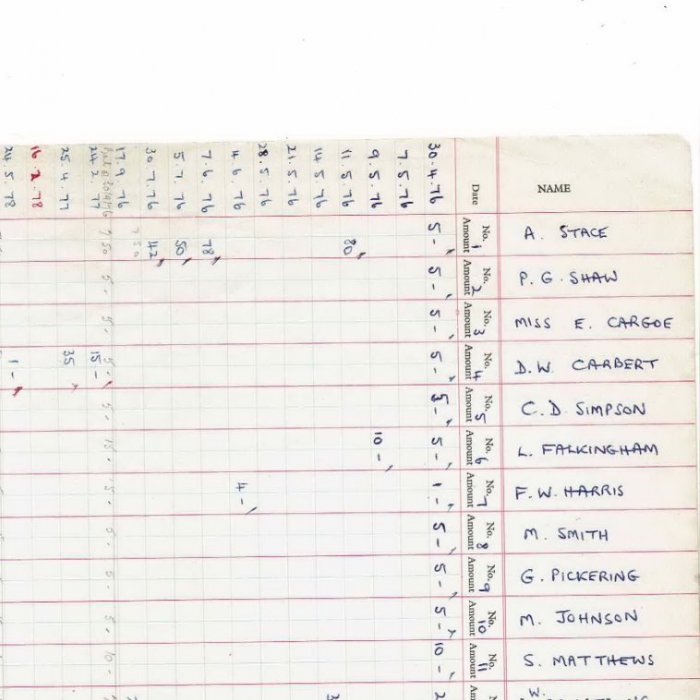 30.4.76
7.5.76
9.5.76
11.5.76
14.5.76
21.5.76
28.5.76
4.6.76
7.6.76
5.7.76
30.7.76
17.9.76
24.2.77
25.4.77
16.2.78
24.5.78
Date
NAME
No. 1
Amount
5 -
80
78
50
42
A. STACE
No. 2
Amount
5 -
5 -
P. G. SHAW
No. 3
Amount
5 -
5 -
MISS E. CARGOE
No. 4
Amount
5 -
5 -
15 -
35
1 -
D.W. CARBERT
No. 5
Amount
5 -
5 -
C. D. SIMPSON
No. 6
Amount
5 -
10 -
15 -
L. FALKINGHAM
No. 7
Amount
1 -
4 -
5 -
F. W. HARRIS
No. 8
Amount
5 -
5 -
M. SMITH
No. 9
Amount
5 -
5 -
G. PICKERING
No. 10
Amount
5 -
5 -
M. JOHNSON
No. 11
Amount
10 -
10 -
S. MATTHEWS
No.
W.